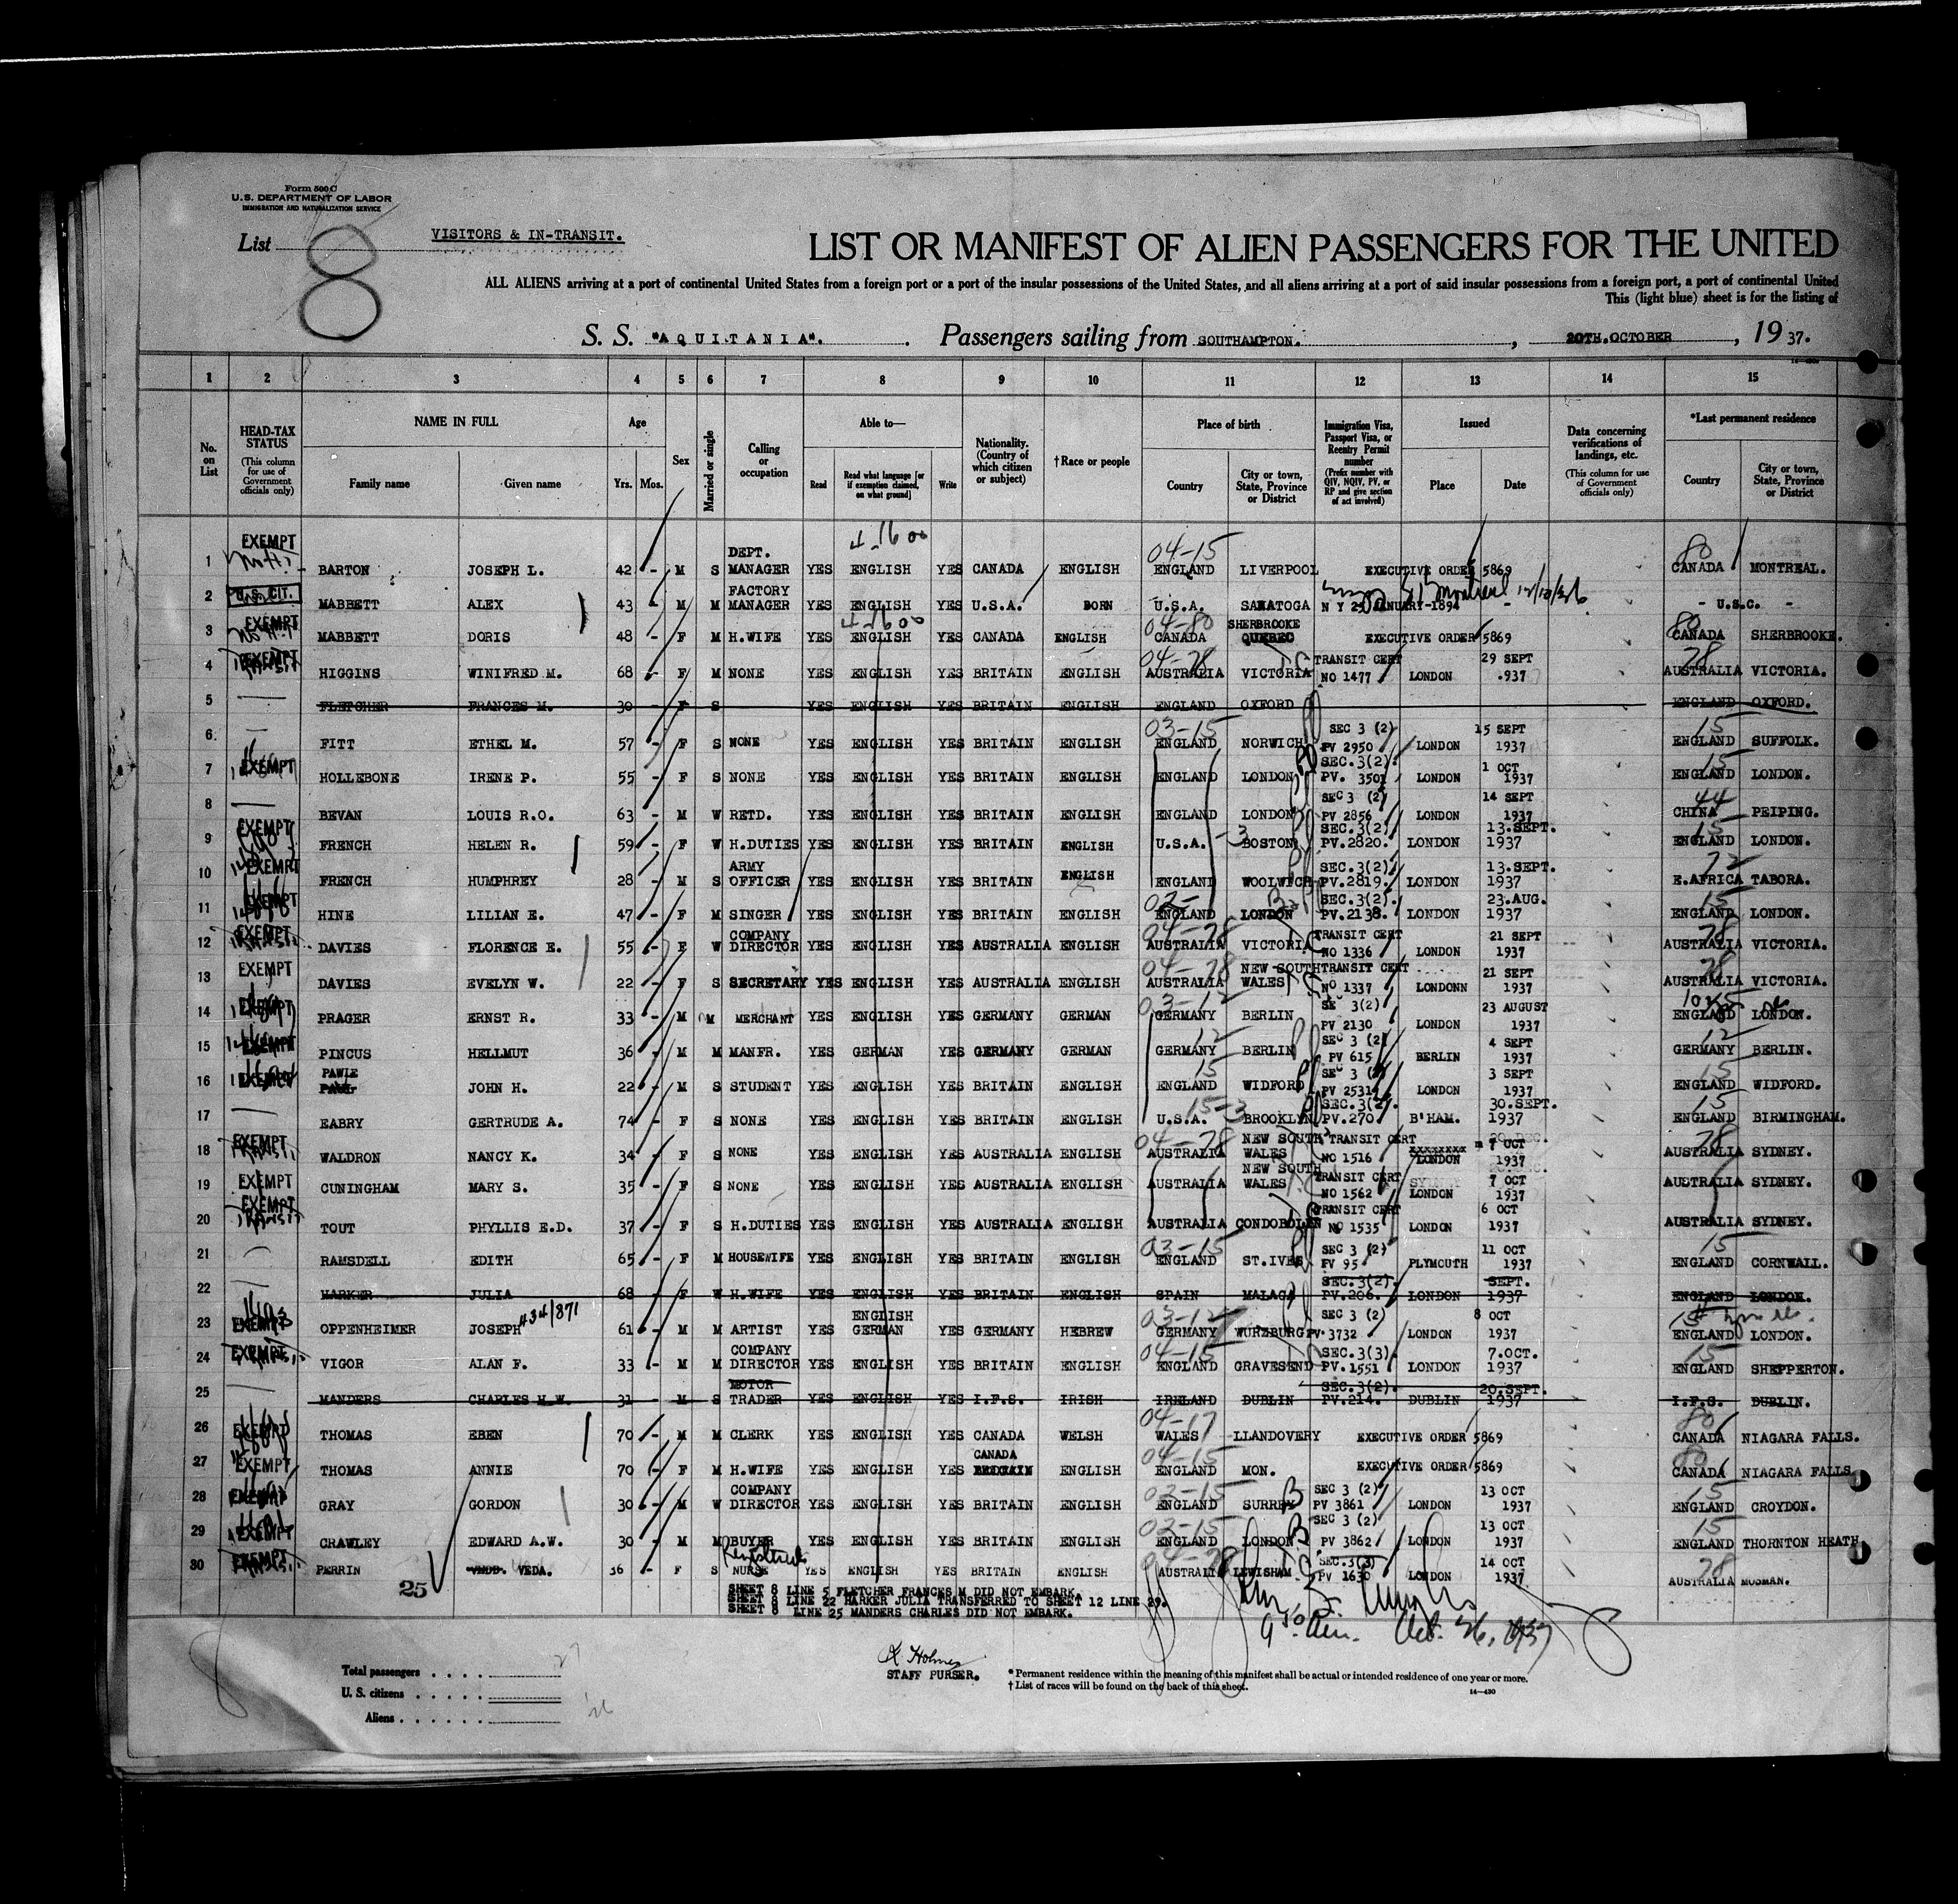 Form 500 C
U.S. DEPARTMENT OF LABOR
IMMIGRATION AND NATURALIZATION SERVICE
List 8 VISITORS & IN-TRANSIT.
LIST OR MANIFEST OF ALIEN PASSENGERS FOR THE UNITED
ALL ALIENS arriving at a port of continental United States from a foreign port or a port of the insular possessions of the United States, and all aliens arriving at a port of said insular possessions from a foreign port, a port of continental United
This (light blue) sheet is for the listing of
S. S. "AQUITANIA". Passengers sailing from SOUTHAMPTON., 20TH.OCTOBER, 19 37.
1 2 3 4 5 6 7 8 9 10 11 12 13 14 15
No. on List
HEAD-TAX STATUS (This column for use of Government officials only)
NAME IN FULL Family name Given name
Age Yrs. Mos.
Sex
Married or single
Calling or occupation
Able to— Read Read what language [or if exemption claimed, on what ground] Write
Nationality. (Country of which citizen or subject)
†Race or people
Place of birth Country City or town, State, Province or District
Immigration Visa, Passport Visa, or Reentry Permit number (Prefix number with QIV, NQIV, PV, or RP and give section of act involved)
Issued Place Date
Data concerning verifications of landings, etc. (This column for use of Government officials only)
*Last permanent residence Country City or town, State, Province or District
1 EXEMPT BARTON JOSEPH L. 42 - M S DEPT. MANAGER YES ENGLISH YES CANADA ENGLISH 04-15 ENGLAND LIVERPOOL EXECUTIVE ORDER 5869 80 CANADA MONTREAL.
2 U.S. CIT. MABBETT ALEX 43 - M M FACTORY MANAGER YES ENGLISH YES U.S.A. BORN U.S.A. SARATOGA N Y 25 JANUARY-1894 - - U.S.C. -
3 EXEMPT MABBETT DORIS 48 - F M H.WIFE YES ENGLISH YES CANADA ENGLISH 04-80 CANADA SHERBROOKE QUEBEC EXECUTIVE ORDER 5869 80 CANADA SHERBROOKE.
4 EXEMPT HIGGINS WINIFRED M. 68 - F M NONE YES ENGLISH YES BRITAIN ENGLISH 04-78 AUSTRALIA VICTORIA TRANSIT CERT NO 1477 LONDON 29 SEPT .937 78 AUSTRALIA VICTORIA.
5 FLETCHER FRANCES M. 30 - F S YES ENGLISH YES BRITAIN ENGLISH ENGLAND OXFORD ENGLAND OXFORD.
6 FITT ETHEL M. 57 - F S NONE YES ENGLISH YES BRITAIN ENGLISH 03-15 ENGLAND NORWICH SEC 3 (2) PV 2950 LONDON 15 SEPT 1937 15 ENGLAND SUFFOLK.
7 EXEMPT HOLLEBONE IRENE P. 55 - F S NONE YES ENGLISH YES BRITAIN ENGLISH ENGLAND LONDON SEC.3(2). PV. 3501 LONDON 1 OCT 1937 15 ENGLAND LONDON.
8 BEVAN LOUIS R.O. 63 - M W RETD. YES ENGLISH YES BRITAIN ENGLISH ENGLAND LONDON SEC 3 (2) PV 2856 LONDON 14 SEPT 1937 44 CHINA PEIPING.
9 EXEMPT FRENCH HELEN R. 59 - F W H.DUTIES YES ENGLISH YES BRITAIN ENGLISH U.S.A. -3 BOSTON SEC.3(2) PV.2820. LONDON 13.SEPT. 1937 15 ENGLAND LONDON.
10 EXEMPT FRENCH HUMPHREY 28 - M S ARMY OFFICER YES ENGLISH YES BRITAIN ENGLISH ENGLAND WOOLWICH SEC.3(2) PV.2819. LONDON 13.SEPT. 1937 72 E.AFRICA TABORA.
11 EXEMPT HINE LILIAN E. 47 - F M SINGER YES ENGLISH YES BRITAIN ENGLISH 02- ENGLAND LONDON SEC.3(2). PV.2138. LONDON 23.AUG. 1937 15 ENGLAND LONDON.
12 EXEMPT DAVIES FLORENCE E. 55 - F W COMPANY DIRECTOR YES ENGLISH YES AUSTRALIA ENGLISH 04-78 AUSTRALIA VICTORIA TRANSIT CERT NO 1336 LONDON 21 SEPT 1937 78 AUSTRALIA VICTORIA.
13 EXEMPT DAVIES EVELYN W. 22 - F S SECRETARY YES ENGLISH YES AUSTRALIA ENGLISH 04-78 AUSTRALIA NEW SOUTH WALES TRANSIT CERT NO 1337 LONDONN 21 SEPT 1937 78 AUSTRALIA VICTORIA.
14 EXEMPT PRAGER ERNST R. 33 - M M MERCHANT YES ENGLISH YES GERMANY GERMAN 03-12 GERMANY BERLIN SE 3(2) PV 2130 LONDON 23 AUGUST 1937 ENGLAND LONDON.
15 EXEMPT PINCUS HELLMUT 36 - M M MANFR. YES GERMAN YES GERMANY GERMAN 12 GERMANY BERLIN SEC 3 (2) PV 615 BERLIN 4 SEPT 1937 12 GERMANY BERLIN.
16 EXEMPT PAWLE PAUL JOHN H. 22 - M S STUDENT YES ENGLISH YES BRITAIN ENGLISH 15 ENGLAND WIDFORD SEC 3 (2) PV 2531 LONDON 3 SEPT 1937 15 ENGLAND WIDFORD.
17 EABRY GERTRUDE A. 74 - F S NONE YES ENGLISH YES BRITAIN ENGLISH 15-3 U.S.A. BROOKLYN SEC.3(2). PV.270 B'HAM. 30.SEPT. 1937 15 ENGLAND BIRMINGHAM.
18 EXEMPT WALDRON NANCY K. 34 - F S NONE YES ENGLISH YES AUSTRALIA ENGLISH 04-78 AUSTRALIA NEW SOUTH WALES TRANSIT CERT NO 1516 LONDON 7 OCT 1937 78 AUSTRALIA SYDNEY.
19 EXEMPT CUNINGHAM MARY S. 35 - F S NONE YES ENGLISH YES AUSTRALIA ENGLISH AUSTRALIA NEW SOUTH WALES TRANSIT CERT NO 1562 LONDON 7 OCT 1937 AUSTRALIA SYDNEY.
20 EXEMPT TOUT PHYLLIS E.D. 37 - F S H.DUTIES YES ENGLISH YES AUSTRALIA ENGLISH AUSTRALIA CONDOBOLIN TRANSIT CERT NO 1535 LONDON 6 OCT 1937 AUSTRALIA SYDNEY.
21 RAMSDELL EDITH 65 - F M HOUSEWIFE YES ENGLISH YES BRITAIN ENGLISH 03-15 ENGLAND ST.IVES SEC 3 (2) PV 95 PLYMOUTH 11 OCT 1937 15 ENGLAND CORNWALL.
22 HARKER JULIA 68 - F W H.WIFE YES ENGLISH YES BRITAIN ENGLISH SPAIN MALAGA SEC.3(2). PV.206. LONDON SEPT. 1937 ENGLAND LONDON.
23 EXEMPT OPPENHEIMER JOSEPH 434/871 61 - M M ARTIST YES ENGLISH GERMAN YES GERMANY HEBREW 03-12 GERMANY WURZBURG SEC 3 (2) PV 3732 LONDON 8 OCT 1937 15 ENGLAND LONDON.
24 EXEMPT VIGOR ALAN F. 33 - M M COMPANY DIRECTOR YES ENGLISH YES BRITAIN ENGLISH 04-15 ENGLAND GRAVESEND SEC.3(3). PV.1551 LONDON 7.OCT. 1937 15 ENGLAND SHEPPERTON.
25 MANDERS CHARLES H.W. 31 - M S MOTOR TRADER YES ENGLISH YES I.F.S. IRISH IRELAND DUBLIN SEC.3(2). PV.214. DUBLIN 20.SEPT. 1937 I.F.S. DUBLIN.
26 EXEMPT THOMAS EBEN 70 - M M CLERK YES ENGLISH YES CANADA WELSH 04-17 WALES LLANDOVERY EXECUTIVE ORDER 5869 80 CANADA NIAGARA FALLS.
27 EXEMPT THOMAS ANNIE 70 - F M H.WIFE YES ENGLISH YES CANADA BRITAIN ENGLISH 04-15 ENGLAND MON. EXECUTIVE ORDER 5869 80 CANADA NIAGARA FALLS
28 EXEMPT GRAY GORDON 30 - M W COMPANY DIRECTOR YES ENGLISH YES BRITAIN ENGLISH 02-15 ENGLAND SURREY SEC 3 (2) PV 3861 LONDON 13 OCT 1937 15 ENGLAND CROYDON.
29 EXEMPT CRAWLEY EDWARD A.W. 30 - M M BUYER YES ENGLISH YES BRITAIN ENGLISH 02-15 ENGLAND LONDON SEC 3 (2) PV 3862 LONDON 13 OCT 1937 15 ENGLAND THORNTON HEATH
30 EXEMPT PERRIN VEDA. 36 - F S NURSE YES ENGLISH YES BRITAIN ENGLISH 04-78 AUSTRALI LEWISHAM SEC.3(3) PV 1630 LONDON 14 OCT 1937 78 AUSTRALIA MOSMAN.
25
SHEET 8 LINE 5 FLETCHER FRANCES M DID NOT EMBARK.
SHEET 8 LINE 22 HARKER JULIA TRANSFERRED TO SHEET 12 LINE 29.
SHEET 8 LINE 25 MANDERS CHARLES DID NOT EMBARK.
Oct. 26, 1937
Total passengers . . . . 27
U. S. citizens . . . . .
Aliens . . . . . . 26
K Holmes
STAFF PURSER.
* Permanent residence within the meaning of this manifest shall be actual or intended residence of one year or more.
† List of races will be found on the back of this sheet.
14—430